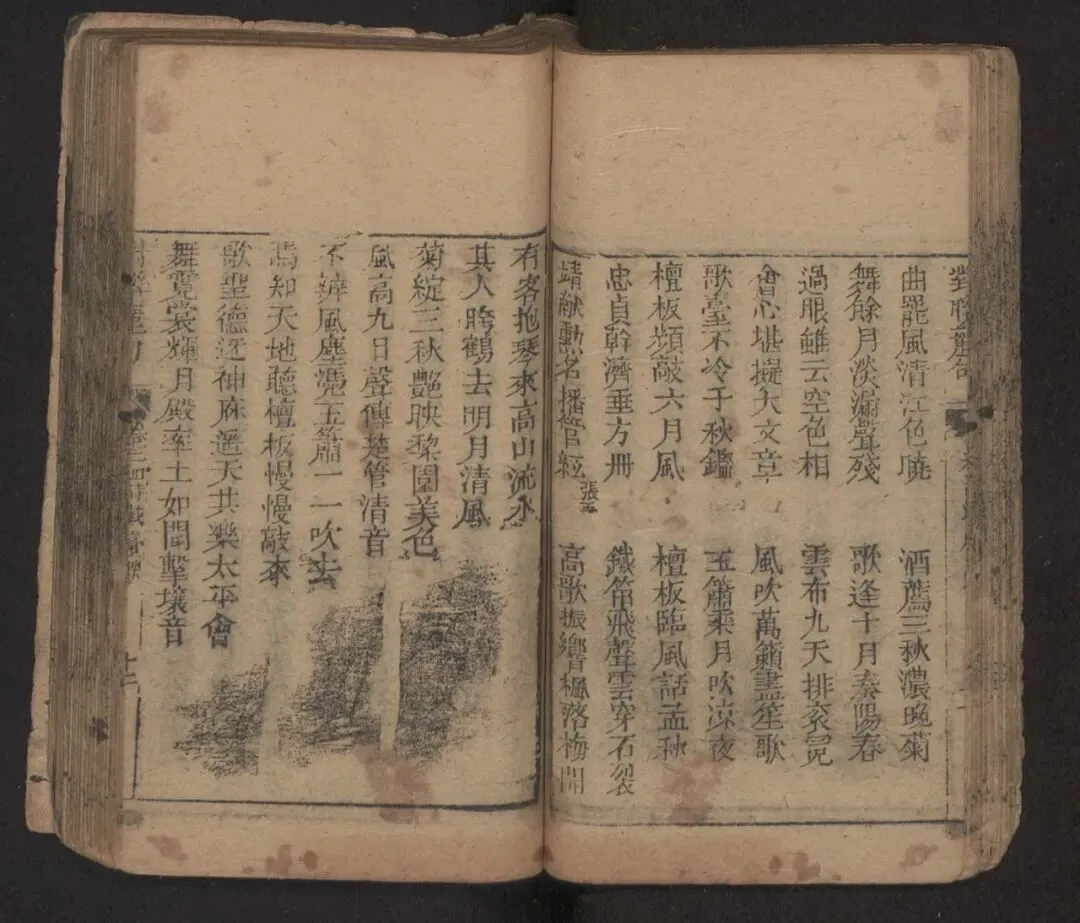 曲罷風清江色曉
酒薦三秋濃晚菊
舞餘月淡漏聲殘
歌逢十月奏陽春
過眼雖云空色相
雲布九天排袞冕
會心堪擬大文章
風吹萬籟盡笙歌
歌臺不冷千秋鑑
玉簫乘月吹涼夜
檀板頻敲六月風
檀板臨風話孟秋
忠貞幹濟垂方冊
鐵笛飛聲雲穿石裂
靖獻勳名播管絃
高歌振響楓落梅開
有客抱琴來高山流水
其人跨鶴去明月清風
菊綻三秋艷映梨園美色
風高九日聲傳楚管清音
不辨風塵憑玉簫一一吹去
焉知天地聽檀板慢慢敲來
歌聖德迓神庥遙天共樂太平會
舞霓裳輝月殿率土如聞擊壤音
十二